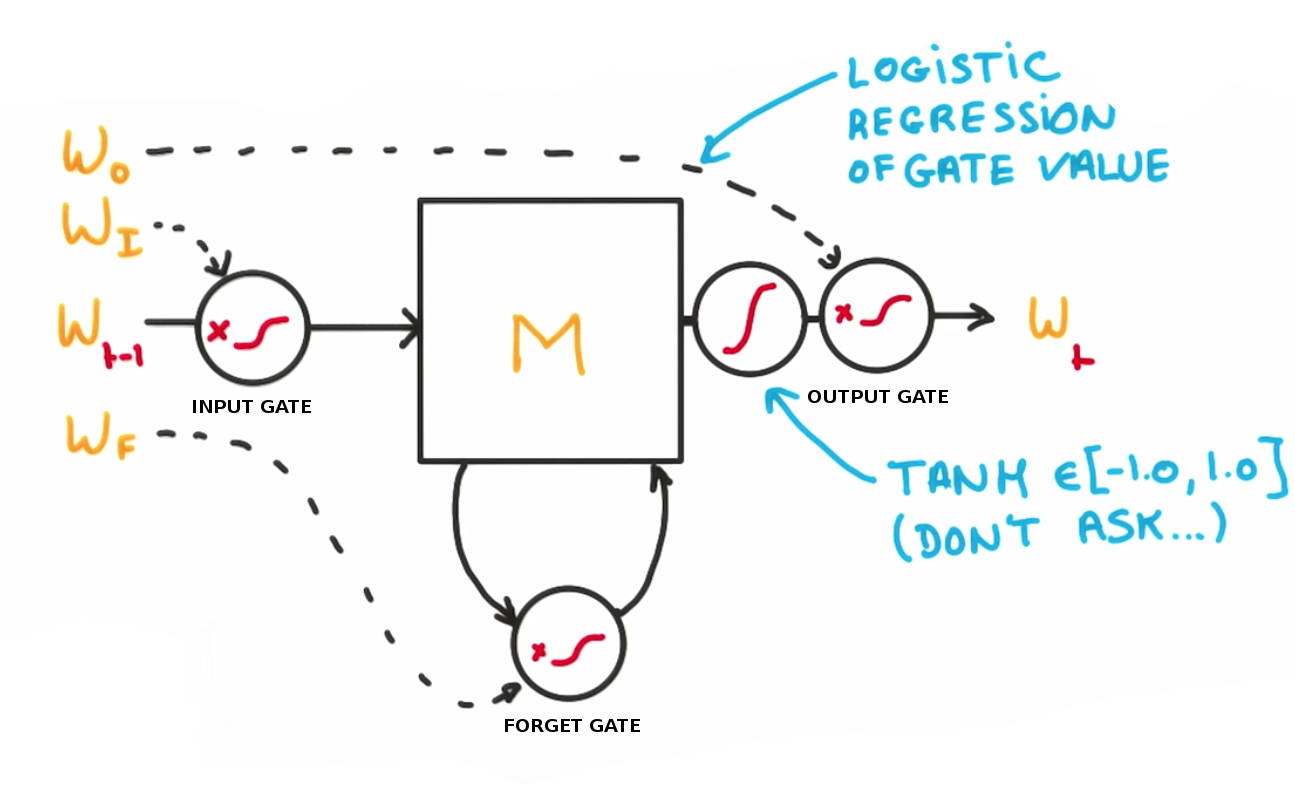 LOGISTIC
REGRESSION
OF GATE VALUE
W₀
W_I
W_t-1
W_F
x
INPUT GATE
M
x
OUTPUT GATE
W_t
TANH ∈[-1.0, 1.0]
(DON'T ASK...)
x
FORGET GATE